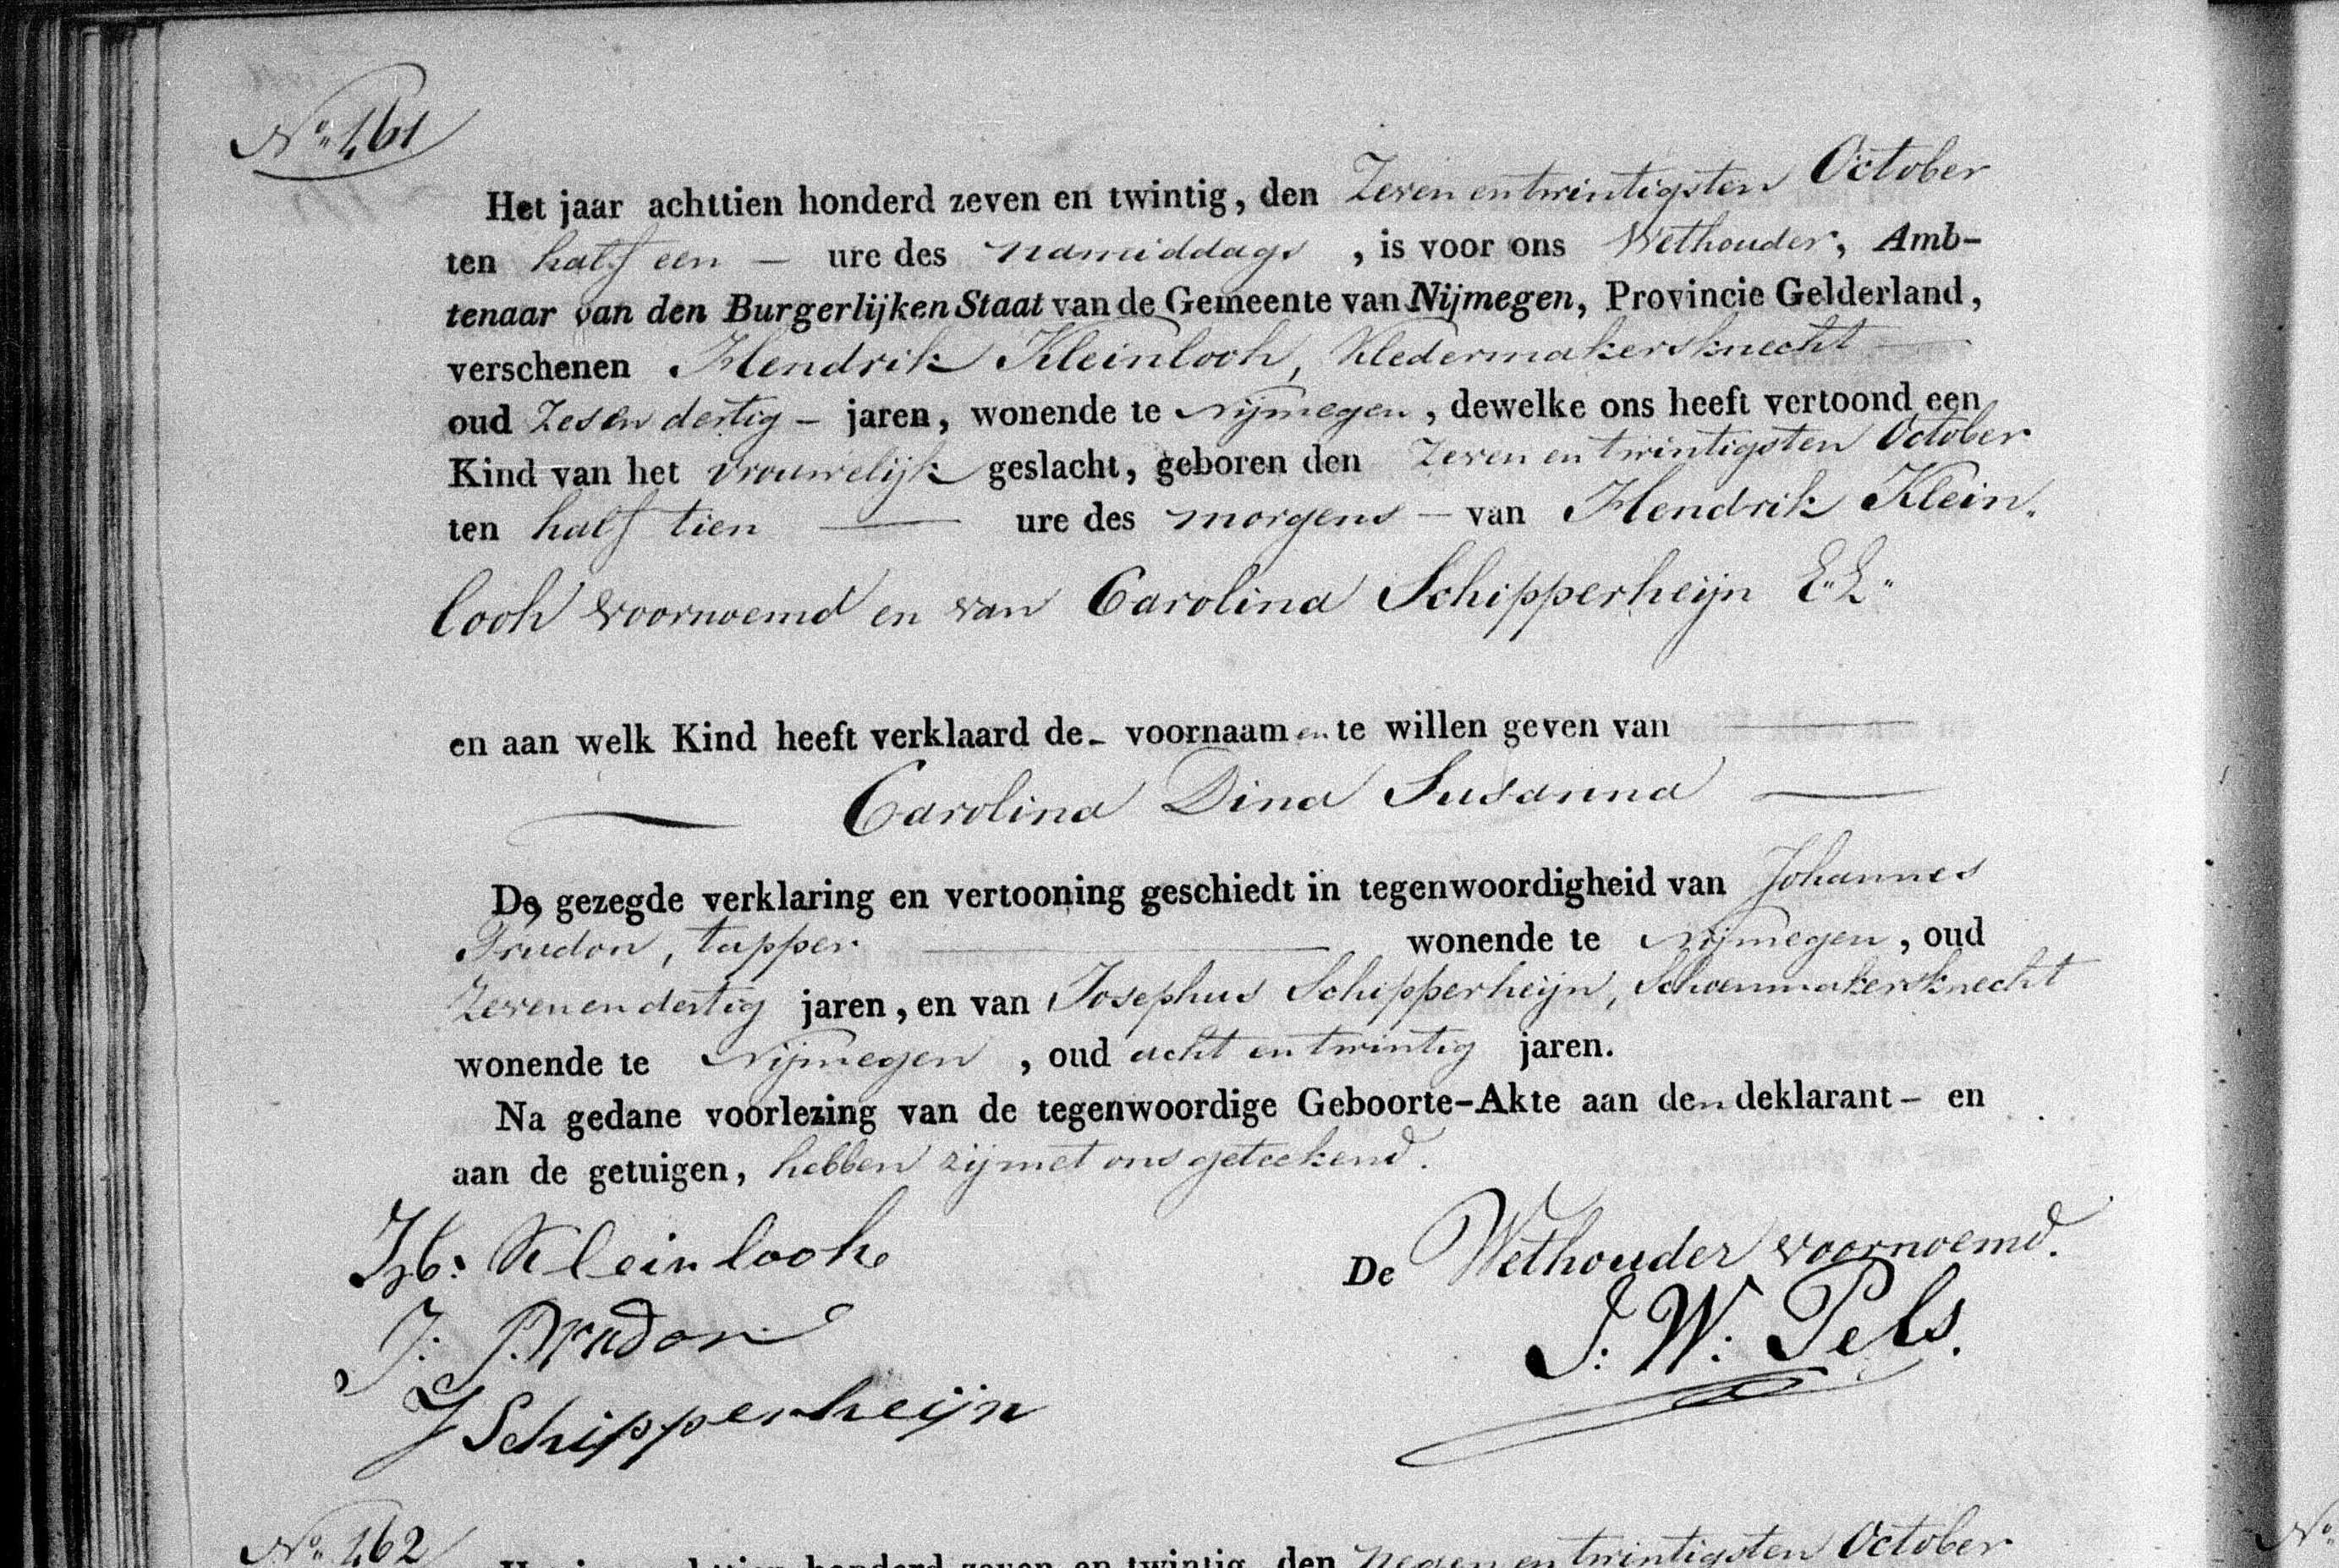 No. 461
Het jaar achttien honderd zeven en twintig, den Zeven en twintigsten October
ten half een — ure des namiddags , is voor ons Wethouder, Amb-
tenaar van den Burgerlijken Staat van de Gemeente van Nijmegen, Provincie Gelderland,
verschenen Hendrik Kleinlooh, Kledermakersknecht —
oud Zes en dertig – jaren, wonende te Nijmegen, dewelke ons heeft vertoond een
Kind van het vrouwelijk geslacht, geboren den Zeven en twintigsten October
ten half tien — ure des morgens — van Hendrik Klein-
looh voornoemd en van Carolina Schipperheijn E.L.
en aan welk Kind heeft verklaard de – voornaamen te willen geven van —
— Carolina Dina Susanna —
De gezegde verklaring en vertooning geschiedt in tegenwoordigheid van Johannes
Prudon, tapper — wonende te Nijmegen, oud
Zeven en dertig jaren, en van Josephus Schipperheijn, Schoenmakersknecht
wonende te Nijmegen , oud acht en twintig jaren.
Na gedane voorlezing van de tegenwoordige Geboorte-Akte aan den deklarant – en
aan de getuigen, hebben zij met ons geteekend.
H: Kleinlooh
De Wethouder voornoemd.
J: Prudon
J. W. Pels.
J Schipperheijn
No. 462
den negen en twintigsten October